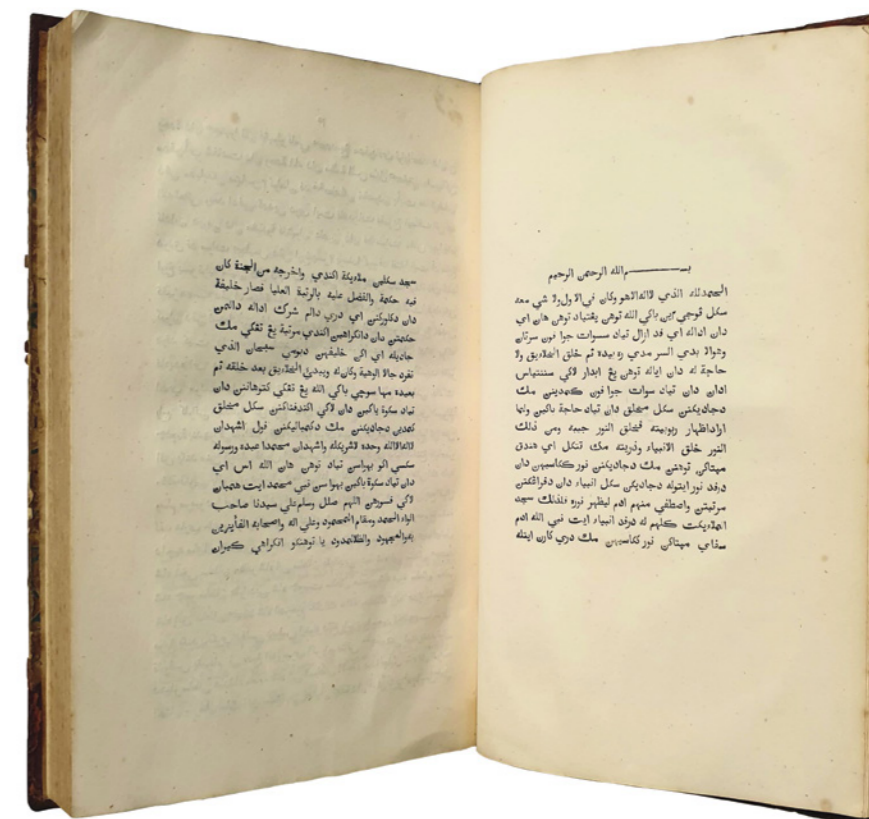 بـــــــم الله الرحمن الرحيم
الحمدلله الذي لااله الاهو وكان في الاول ولا شي معه
سكل فوجي ايت باكي الله توهن يغتياد توهن هان اي
دان اداله اي فد ازال تياد سوات جوا فون سرتان
وهوالا بدي السر مدي ره بيده ثم خلق الخلايق ولا
حاجة له دان اياله توهن يغ ابدار لاكي سنتياس
ادان دان تياد سوات جوا فون كمدين مك
دجاديكنن سكل مخلق دان تياد حاجة باكين وانها
اراداظهار ربوبيته فخلق النور حبيبه ومن ذلك
النور خلق الانبياء وذريته مك تتكل اي هندق
مپتاكن توهنن مك دجاديكنن نور ككاسيهن دان
درفد نور ايتوله دجاديكن سكل انبياء دان دفراغكتن
مرتبتن واصطفي منهم ادم ليظهر نوره فلذلك سجد
الملايكت كلهم له درفد انبياء ايت نبي الله ادم
سفاي مپتاكن نور ككاسيهن مك دري كارن ايتله
سجد سكلين ملايكة اكندي واخرجه من الجنة كان
فيه حكمة والفضل عليه بالرتبة العليا فصار خليفة
دان دكلوركنن اي دري دالم شرك اداله دالمن
حكمتن دان دانكراهين اكندي مرتبة يغ تغكي مك
جاديله اي اكن خليفهن دبومي سبحان الذي
تفرد جالا الوهية وكان له ويبدئ الخلايق بعد خلقه ثم
بعيده مها سوچي باكي الله يغ تغكي كتوهانن دان
تياد سكوة باكين دان لاكي اكندفناكنن سكل مخلق
كمدين دجاديكنن مك دكمباليكنن قول اشهدان
لااله الاالله وحده لاشريكله واشهدان محمدا عبده ورسوله
سكسي اكو بهواسن تياد توهن هان الله اس اي
دان تياد سكوة باكين بهواسن نبي محمد ايت همبان
لاكي فسورهن اللهم صلل وسلم علي سيدنا صاحب
الواء الحمد ومقام المحمود وعلي اله واصحابه الفأيزين
بغوالعجهود والظلالممدود يا توهنكو انكراهي كيران